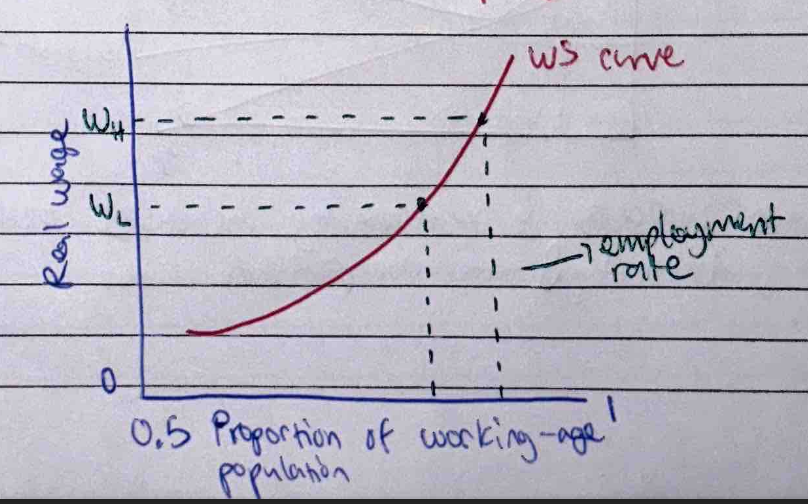 WS curve
WH
Real wage
WL
employment
rate
0
0.5 Proportion of working-age 1
population